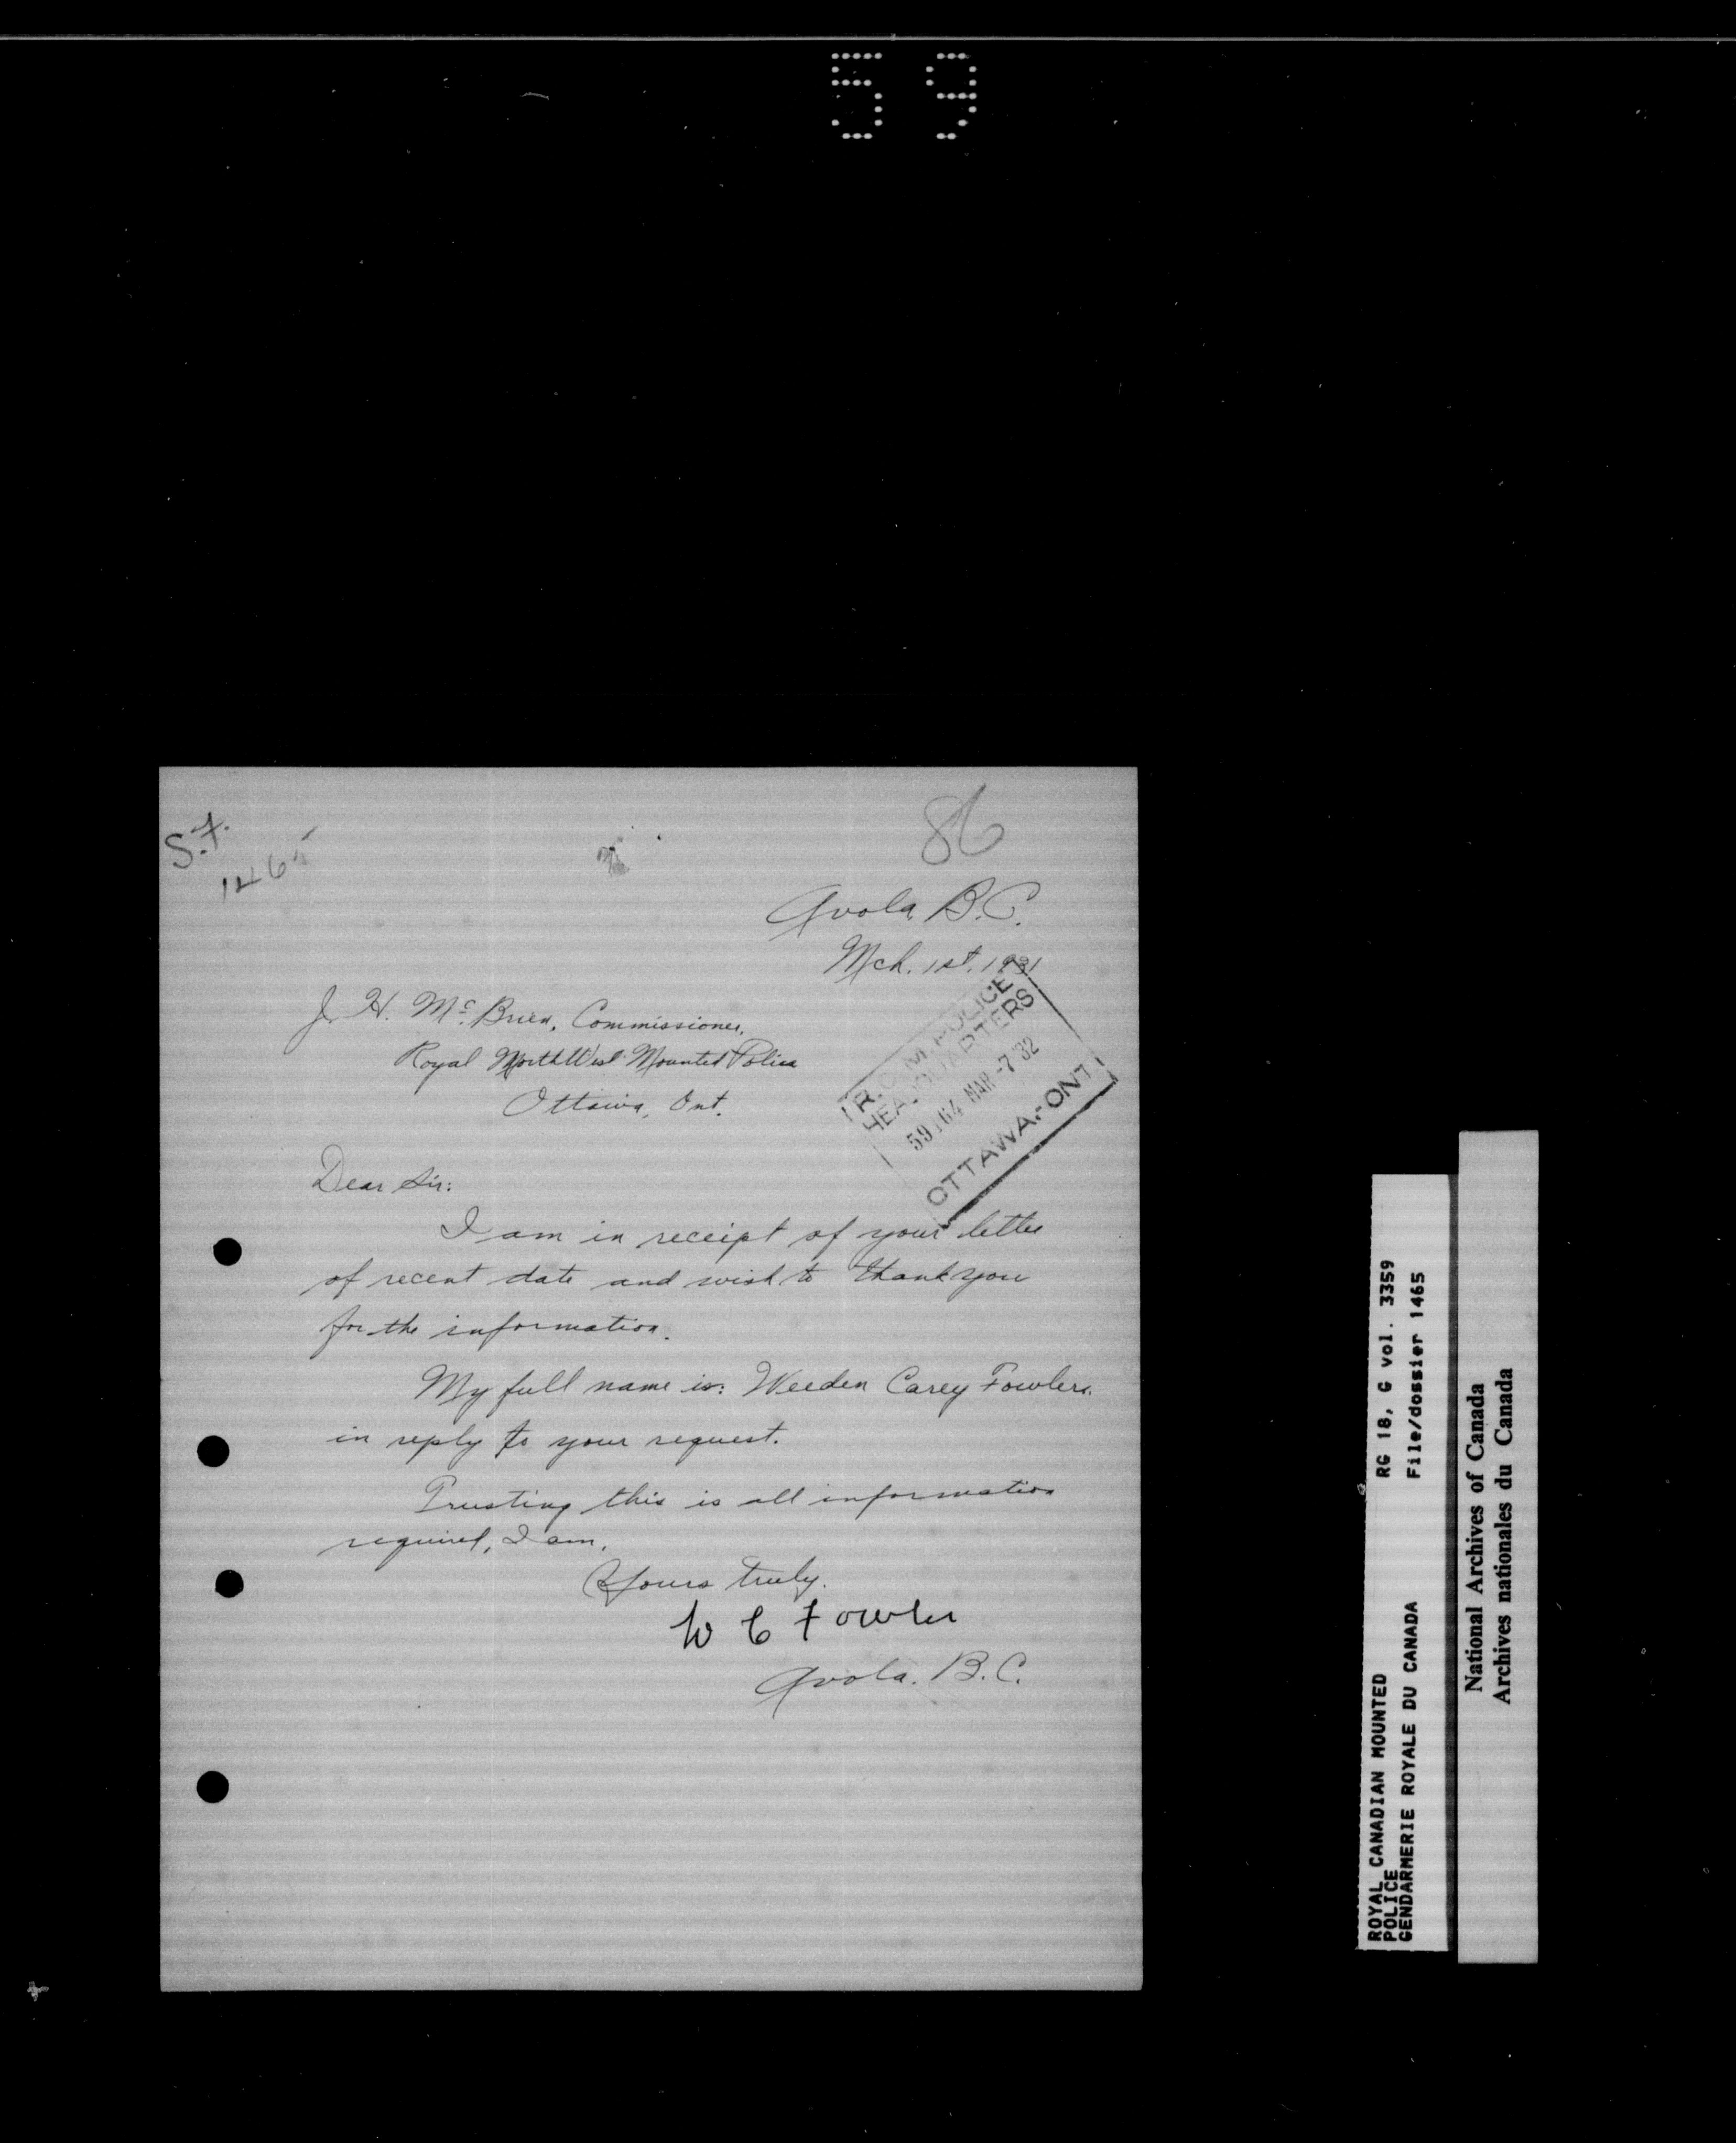 59
86
S.F.
1465
Avola B.C.
Mch. 1st. 1931
J. H. McBrien, Commissioner,
Royal NorthWest Mounted Police
Ottawa, Ont.
R.C.M. POLICE
HEADQUARTERS
MAR -7 '32
OTTAWA.-ONT
Dear Sir:
I am in receipt of your letter
of recent date and wish to thank you
for the information.
My full name is: Weeden Carey Fowler.
in reply to your request.
Trusting this is all information
required, I am,
Yours truly.
W C Fowler
Avola. B.C.
ROYAL CANADIAN MOUNTED
POLICE
GENDARMERIE ROYALE DU CANADA
RG 18, G vol. 3359
File/dossier 1465
National Archives of Canada
Archives nationales du Canada